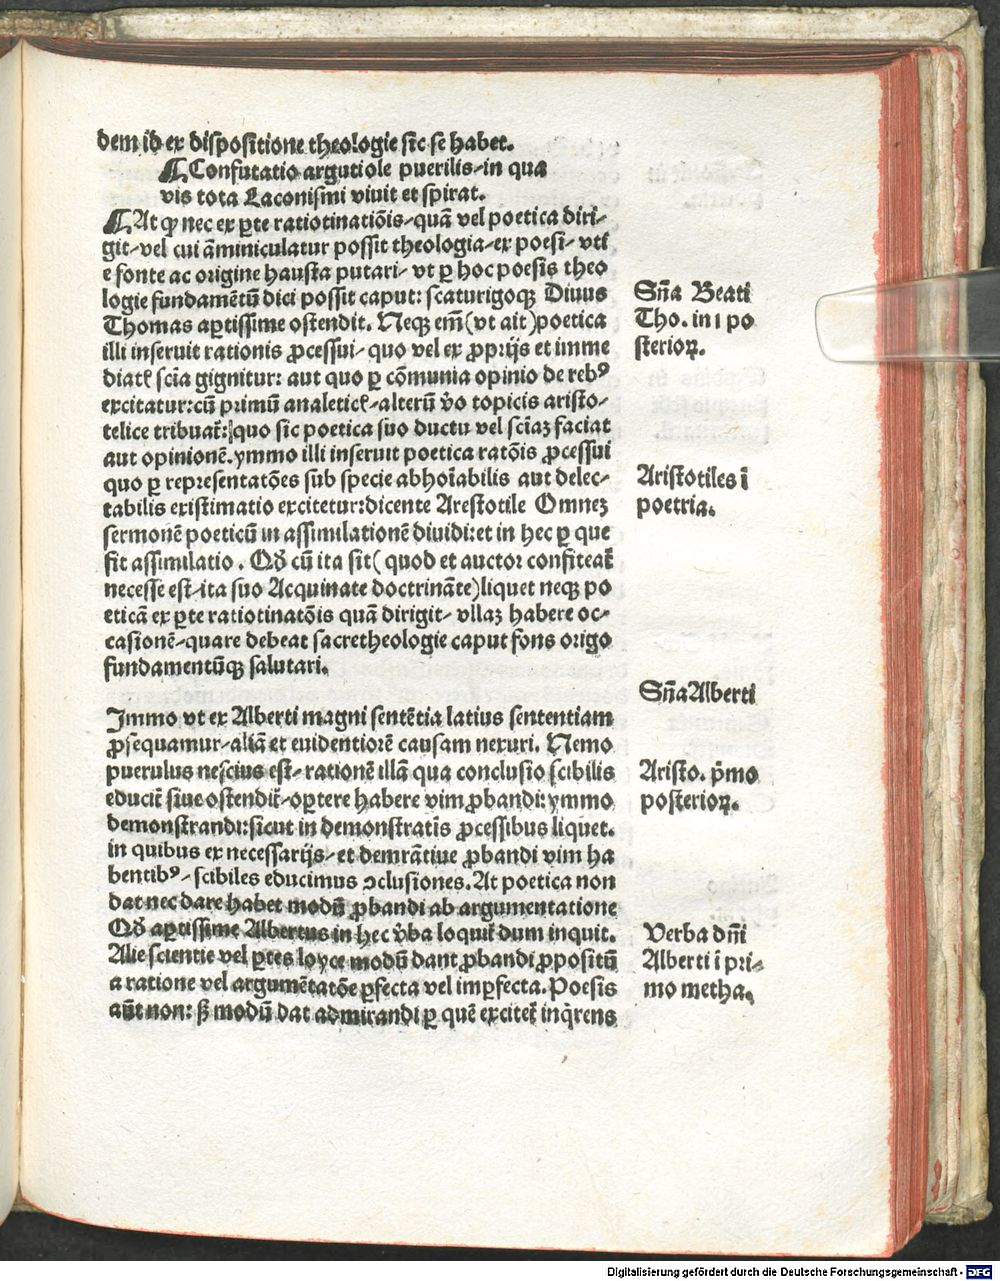 dem id ex dispositione theologie sic se habet.
¶Confutatio argutiole puerilis⸗in qua
vis tota Laconismi viuit et spirat.
¶At ꝙ nec ex ꝑte ratiotinatiōis⸗quā vel poetica diri⸗
git⸗vel cui āminiculatur possit theologia⸗ex poesi⸗vti
e fonte ac origine hausta putari⸗vt ꝑ hoc poesis theo
logie fundamētū dici possit caput: scaturigoqꝫ Diuus
Thomas aptissime ostendit. Neqꝫ em̄(vt ait)poetica
illi inseruit rationis ꝓcessui⸗quo vel ex ꝓprijs et imme
diatꝭ scīa gignitur: aut quo ꝑ cōmunia opinio de rebꝰ
excitatur:cū primū analeticꝭ⸗alterū v̄o topicis aristo⸗
telice tribuat̄:quo sic poetica suo ductu vel sciaꝫ faciat
aut opinionē.ymmo illi inseruit poetica ratōis ꝓcessui
quo ꝑ representatōes sub specie abhoīabilis aut delec⸗
tabilis existimatio excitetur:dicente Arestotile Omneꝫ
sermonē poeticū in assimilationē diuidi:et in hec ꝑ que
fit assimilatio. Qđ cū ita sit( quod et auctor confiteat̄
necesse est⸗ita suo Acquinate doctrināte)liquet neqꝫ po
eticā ex ꝑte ratiotinatōis quā dirigit⸗ vllaꝫ habere oc⸗
casionē⸗quare debeat sacretheologie caput fons origo
fundamentūqꝫ salutari.
Immo vt ex Alberti magni sentētia latius sententiam
ꝓsequamur⸗aliā et euidentiorē causam nexuri. Nemo
puerulus nescius est⸗rationē illā qua conclusio scibilis
educit̄ siue ostendit̄⸗oꝑtere habere vim ꝓbandi:ymmo
demonstrandi:sicut in demonstratīs ꝓcessibus liquet.
in quibus ex necessarijs⸗et demrātiue ꝓbandi vim ha
bentibꝰ⸗scibiles educimus ꝯclusiones. At poetica non
dat nec dare habet modū ꝓbandi ab argumentatione
Qđ aptissime Albertus in hec v̄ba loquit̄ dum inquit.
Alie scientie vel ꝑtes loyce modū dant ꝓbandi ꝓpositū
a ratione vel argumētatōe ꝑfecta vel imꝑfecta. Poesis
aūt non: ꝭ modū dat admirandi ꝑ quē excitet̄ inq̄rens
Sn̄a Beati
Tho. in 1 po
steriorꝝ.
Aristotiles ī
poetria.
Sn̄a Alberti
Aristo. p̄mo
posteriorꝝ.
Verba dn̄i
Alberti ī pri⸗
mo metha.
Digitalisierung gefördert durch die Deutsche Forschungsgemeinschaft - DFG